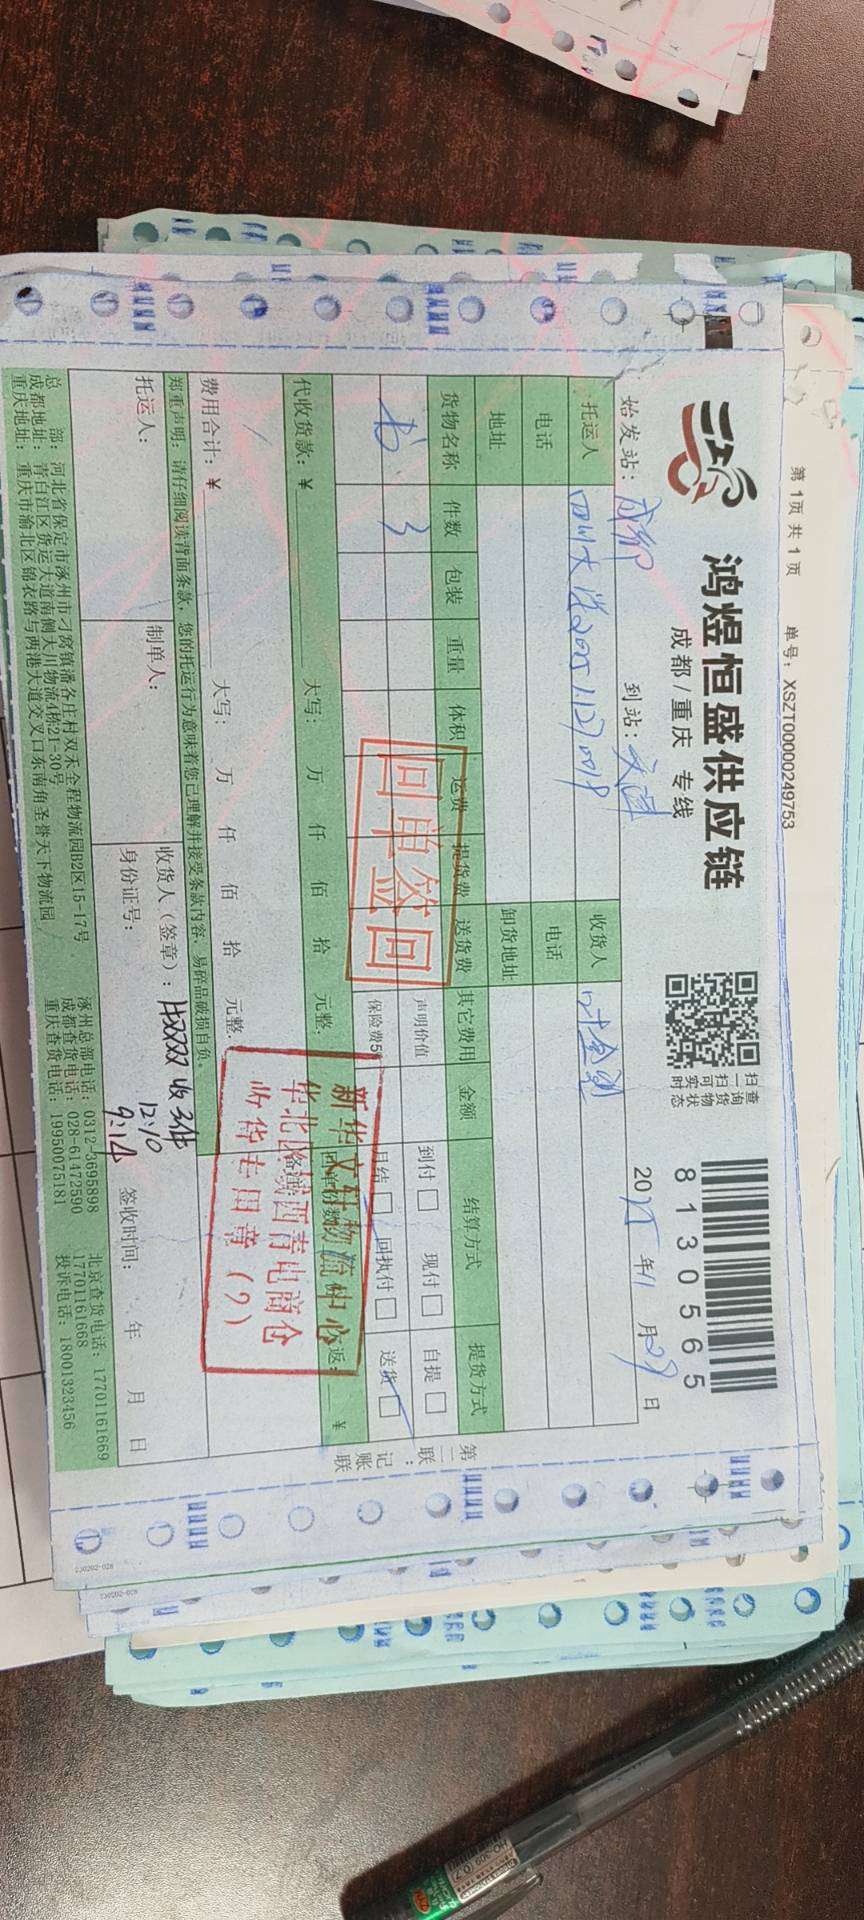 第 1页 共 1 页 单号：XSZT00000249753
鸿煜恒盛供应链
成都/重庆 专线
扫一扫可实时
查询货物状态
8130565
始发站：成都 到站：天津 2025年11月29日
托运人 四川大学202511270018 收货人
电话 电话
地址 卸货地址
货物名称 件数 包装 重量 体积 运费 提货费 送货费 其它费用 金额 结算方式 提货方式
书 3 声明价值 到付 现付 自提
保险费5 月结 回执付 送货
回单签回
代收货款：￥ 大写： 万 仟 佰 拾 元整. 返： ￥
费用合计：￥ 大写： 万 仟 佰 拾 元整.
新华文轩物流中心
华北区域西青电商仓
收货专用章（7）
郑重声明：请仔细阅读背面条款，您的托运行为意味着您已理解并接受条款内容，易碎品破损自负。
托运人： 制单人： 收货人（签章）： 收3件
12.10
9:14
身份证号： 签收时间： 年 月 日
总 部：河北省保定市涿州市刁窝镇潘各庄村双禾全程物流园B2区15-17号 涿州总部电话：0312-3695898 北京查货电话：17701161669
成都地址：青白江区货运大道南侧大川物流4栋21-30号 成都查货电话：028-61472590 17701161668
重庆地址：重庆市渝北区锦衣路与两港大道交叉口东南角圣誉天下物流园 重庆查货电话：19950075181 投诉电话：18001323456
第二联：记账联